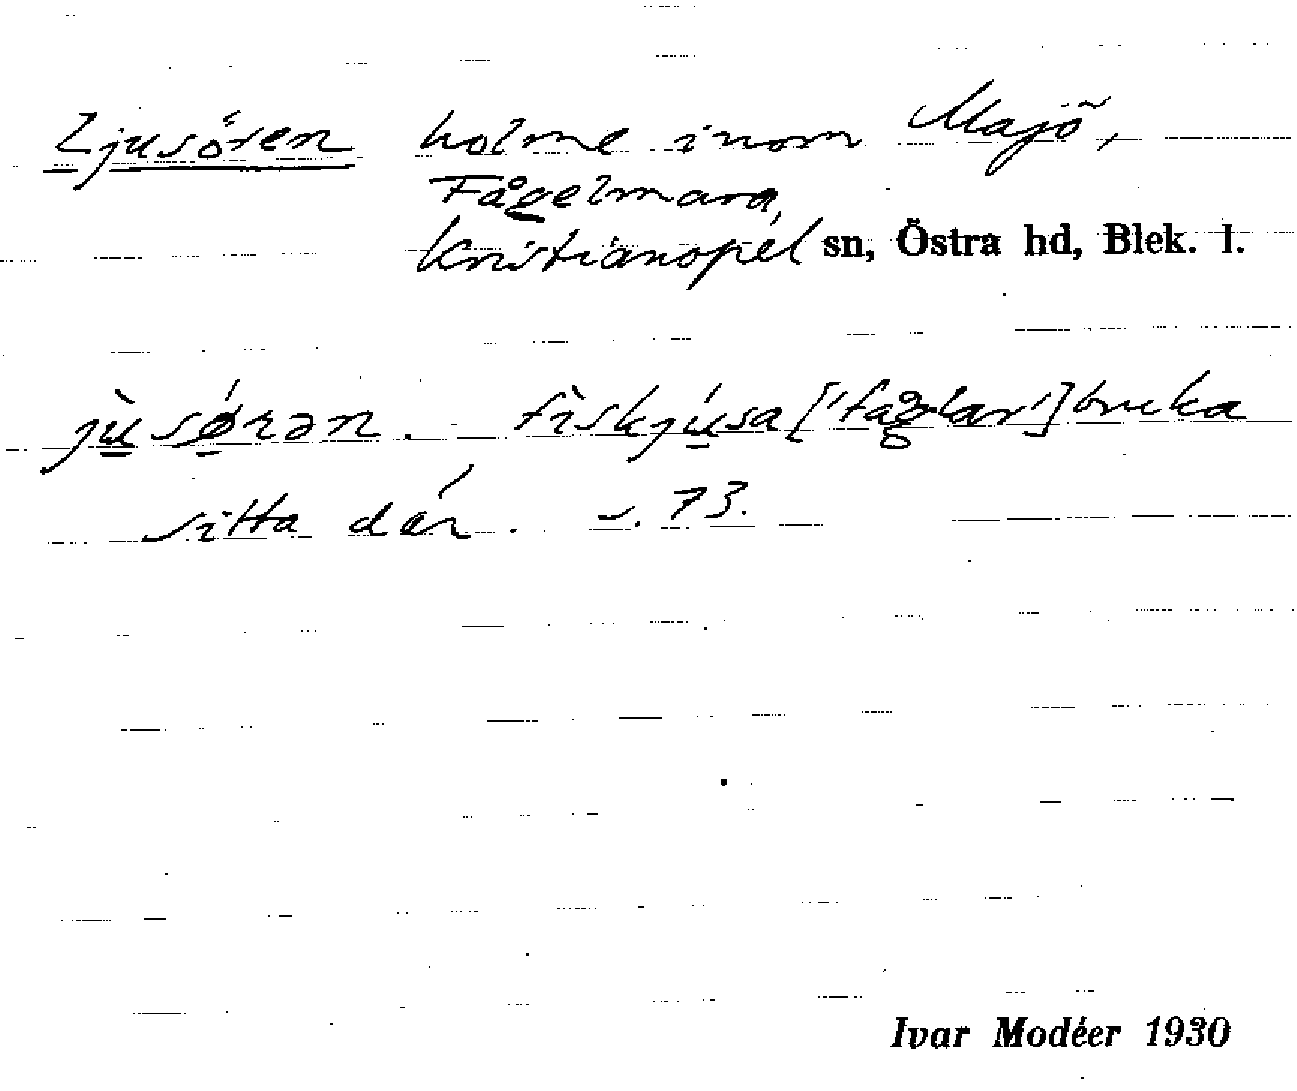 Ljusören holme inom Majö,
Fågelmara,
Kristianopel sn, Östra hd, Blek. l.
jùsǿrən. fìskjúsa ['fåglar'] bruka
sitta dár. s. 73.
Ivar Modéer 1930